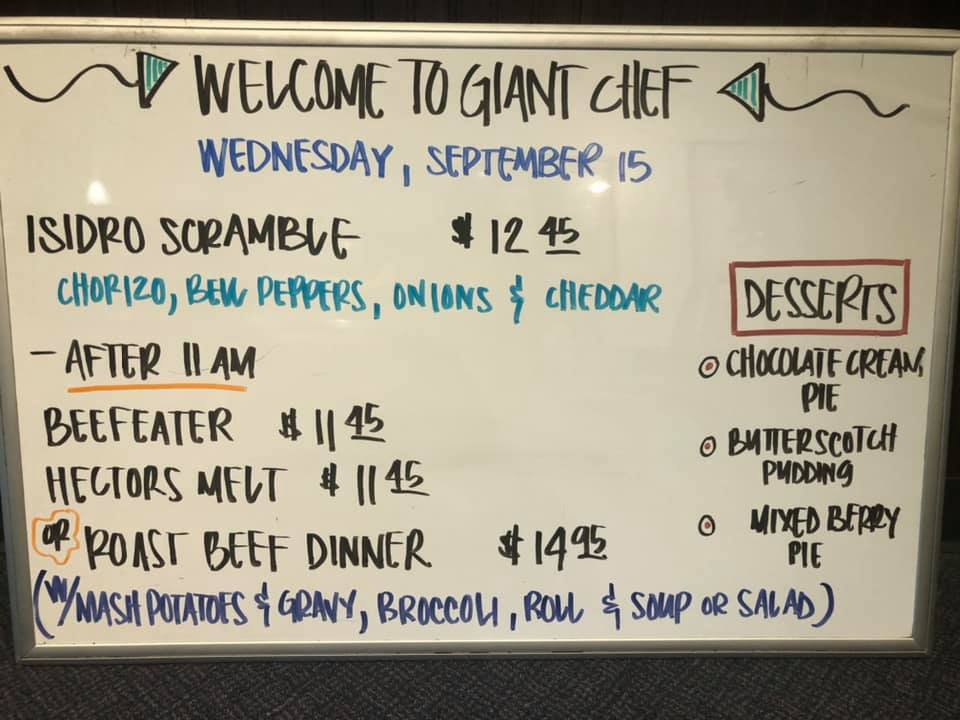 WELCOME TO GIANT CHEF
WEDNESDAY, SEPTEMBER 15
ISIDRO SCRAMBLE $ 12 45
CHORIZO, BELL PEPPERS, ONIONS & CHEDDAR
- AFTER 11 AM
BEEFEATER $ 11 45
HECTORS MELT $ 11 45
OR ROAST BEEF DINNER $ 14 95
(W/ MASH POTATOES & GRAVY, BROCCOLI, ROLL & SOUP OR SALAD)
DESSERTS
CHOCOLATE CREAM
PIE
BUTTERSCOTCH
PUDDING
MIXED BERRY
PIE